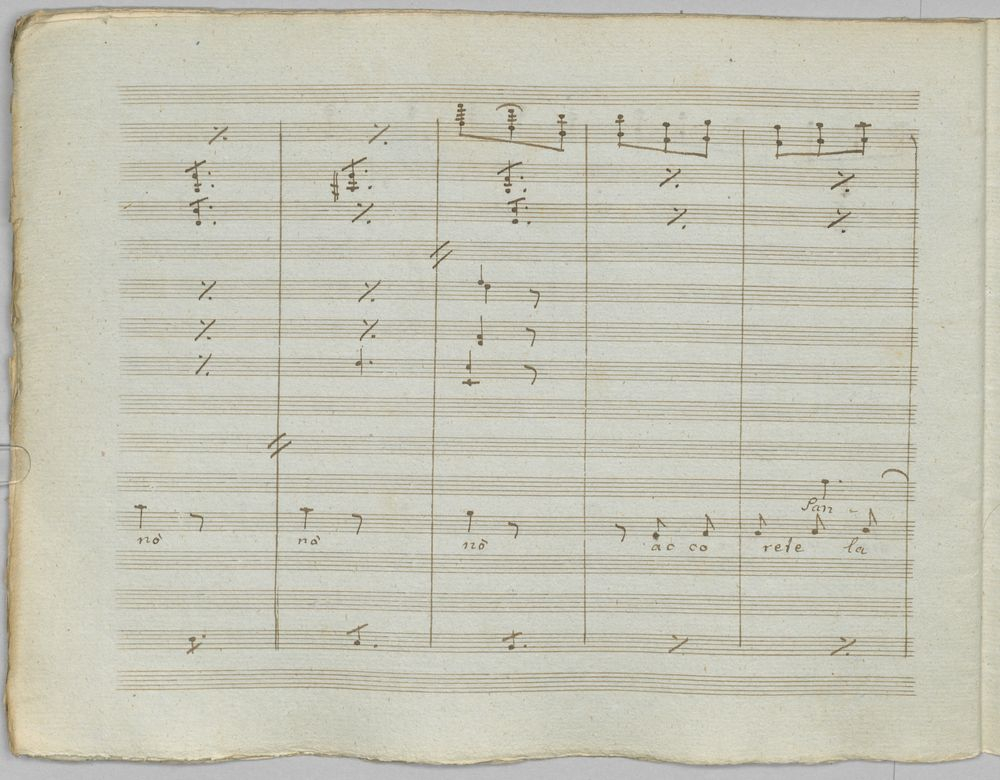 San -
nò nò nò ac co rete la